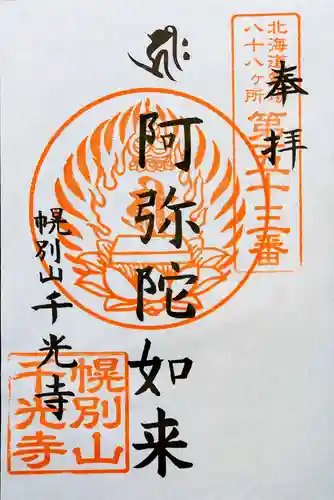 奉拝
北海道霊場
八十八ヶ所
第五十三番
阿弥陀如来
幌別山千光寺
幌別山
千光寺